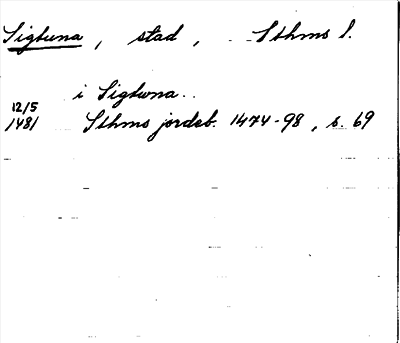 Sigtuna, stad, Sthms l.
i Sigtwna..
12/5
1481 Sthms jordeb. 1474-98, s. 69